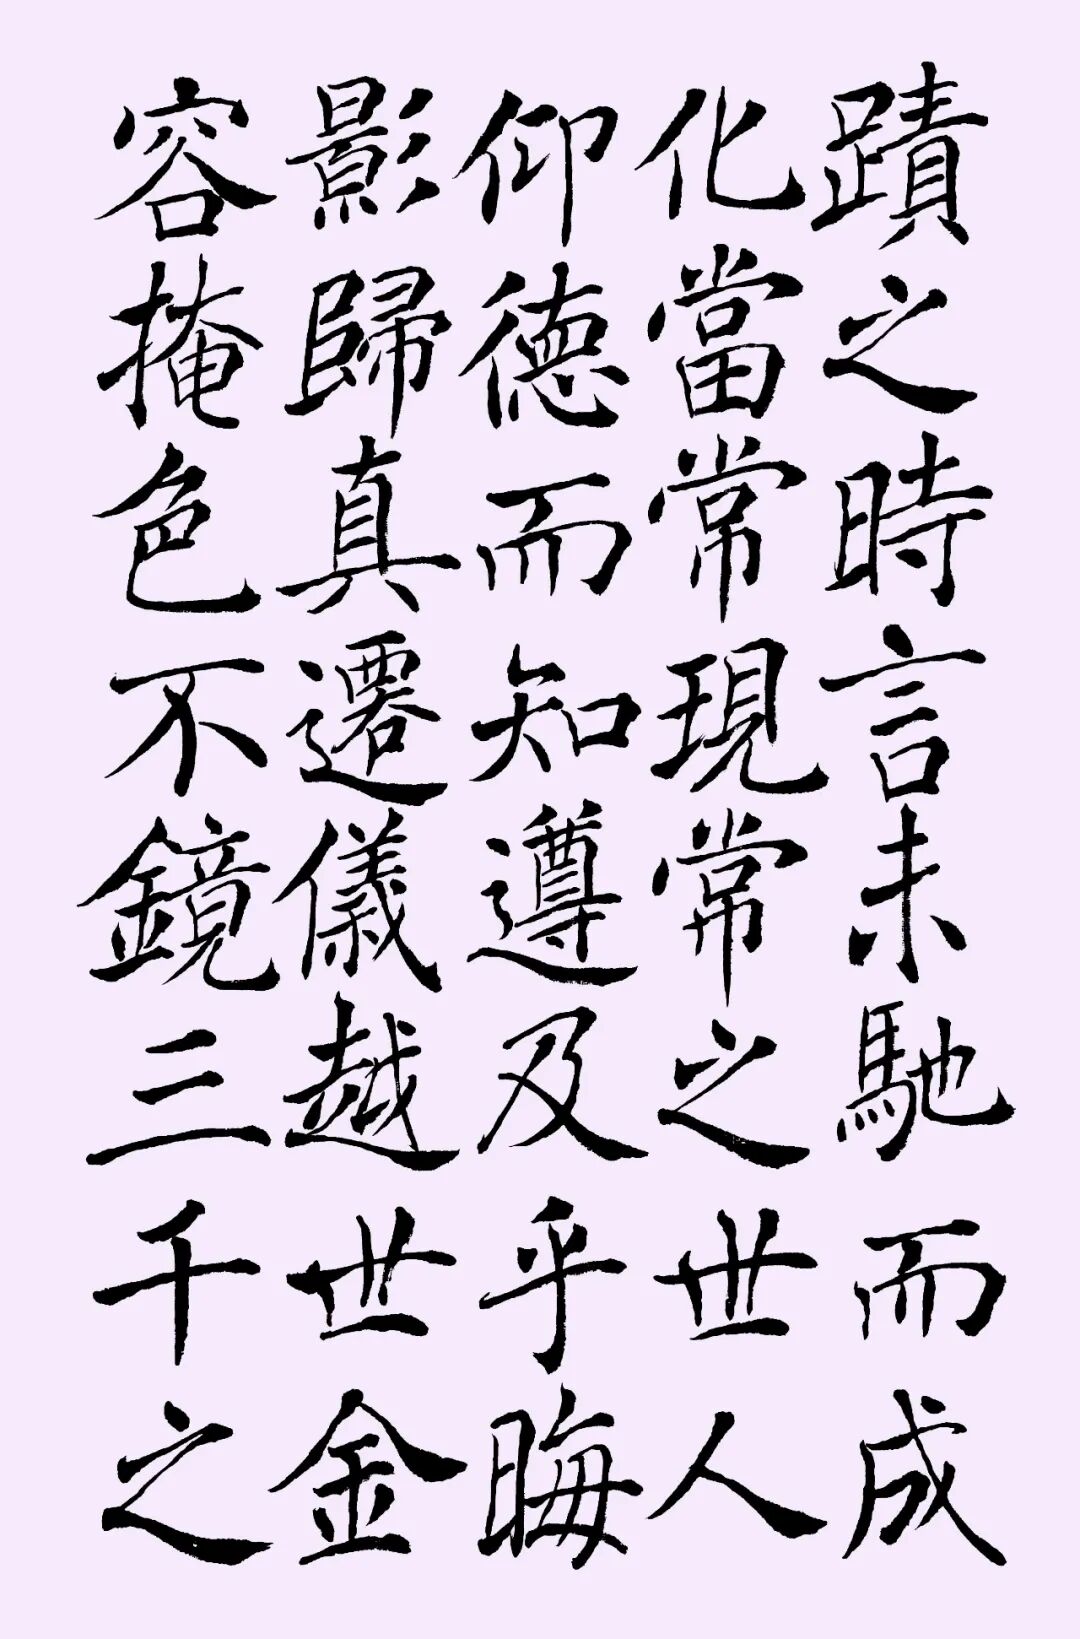 蹟之時言未馳而成
化當常現常之世人
仰德而知遵及乎晦
影歸真遷儀越世金
容掩色不鏡三千之